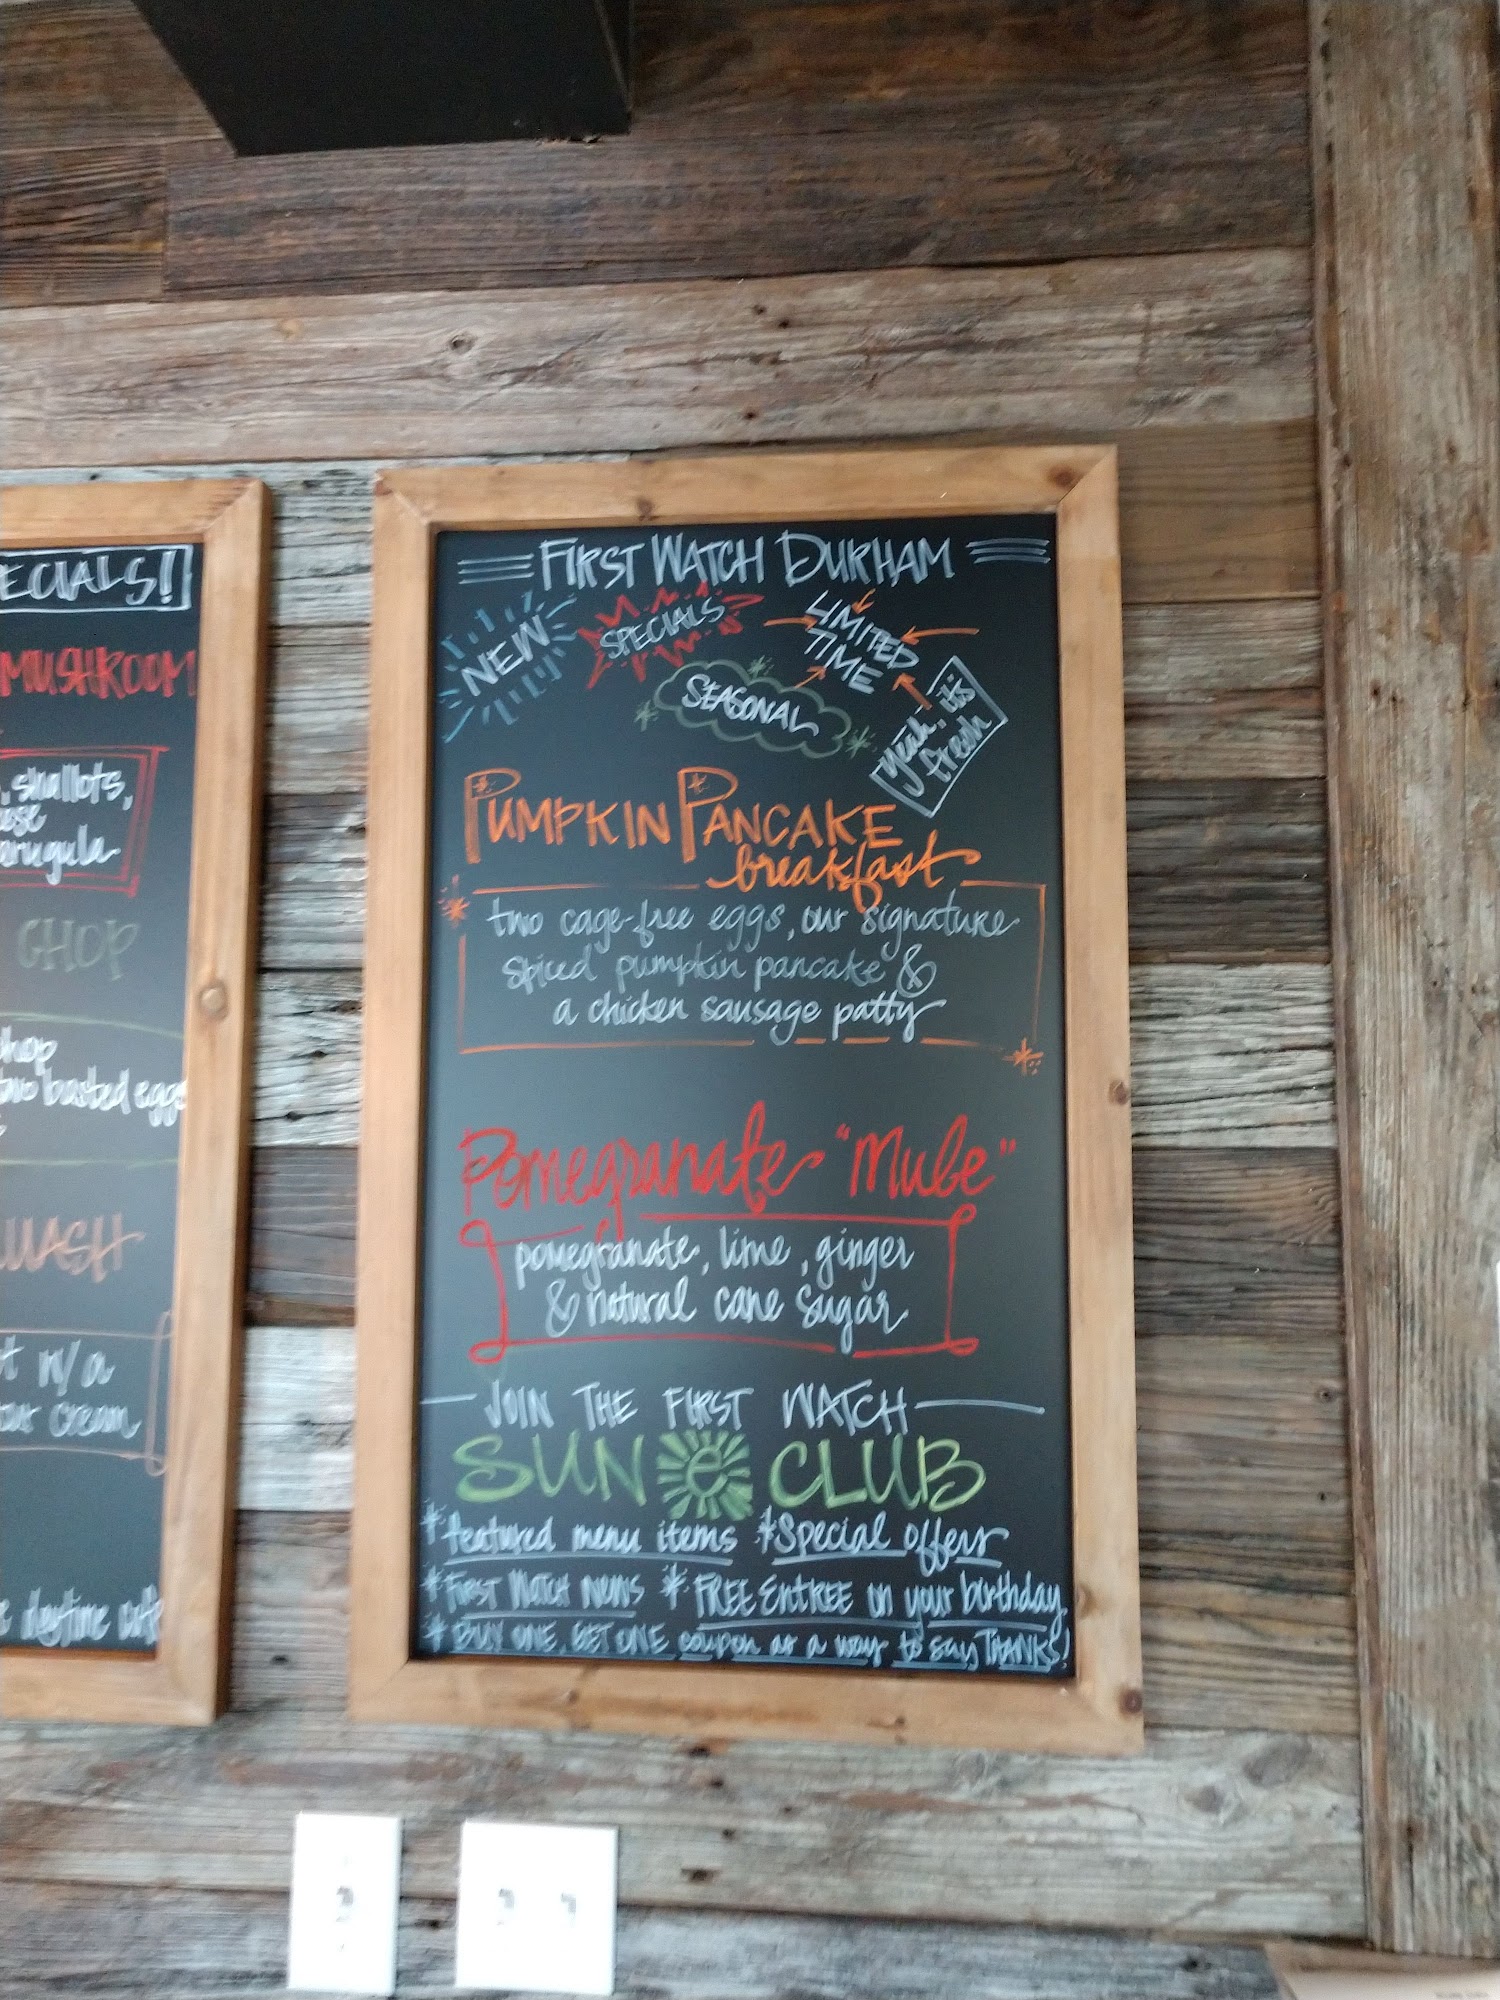 ECIALS!
MUSHROOM
, shallots,
arugula
CHOP
hop
two basted eggs
t w/a
cream
daytime
FIRST WATCH DURHAM
NEW
SPECIALS
LIMITED
TIME
SEASONAL
yeah, it's
fresh
PUMPKIN PANCAKE
breakfast
two cage-free eggs, our signature
spiced pumpkin pancake &
a chicken sausage patty
Pomegranate "Mule"
pomegranate, lime, ginger
& natural cane sugar
JOIN THE FIRST WATCH
SUN e CLUB
* featured menu items * Special offers
* First Watch news * FREE ENTREE on your birthday
* BUY ONE, GET ONE coupon as a way to say THANKS!